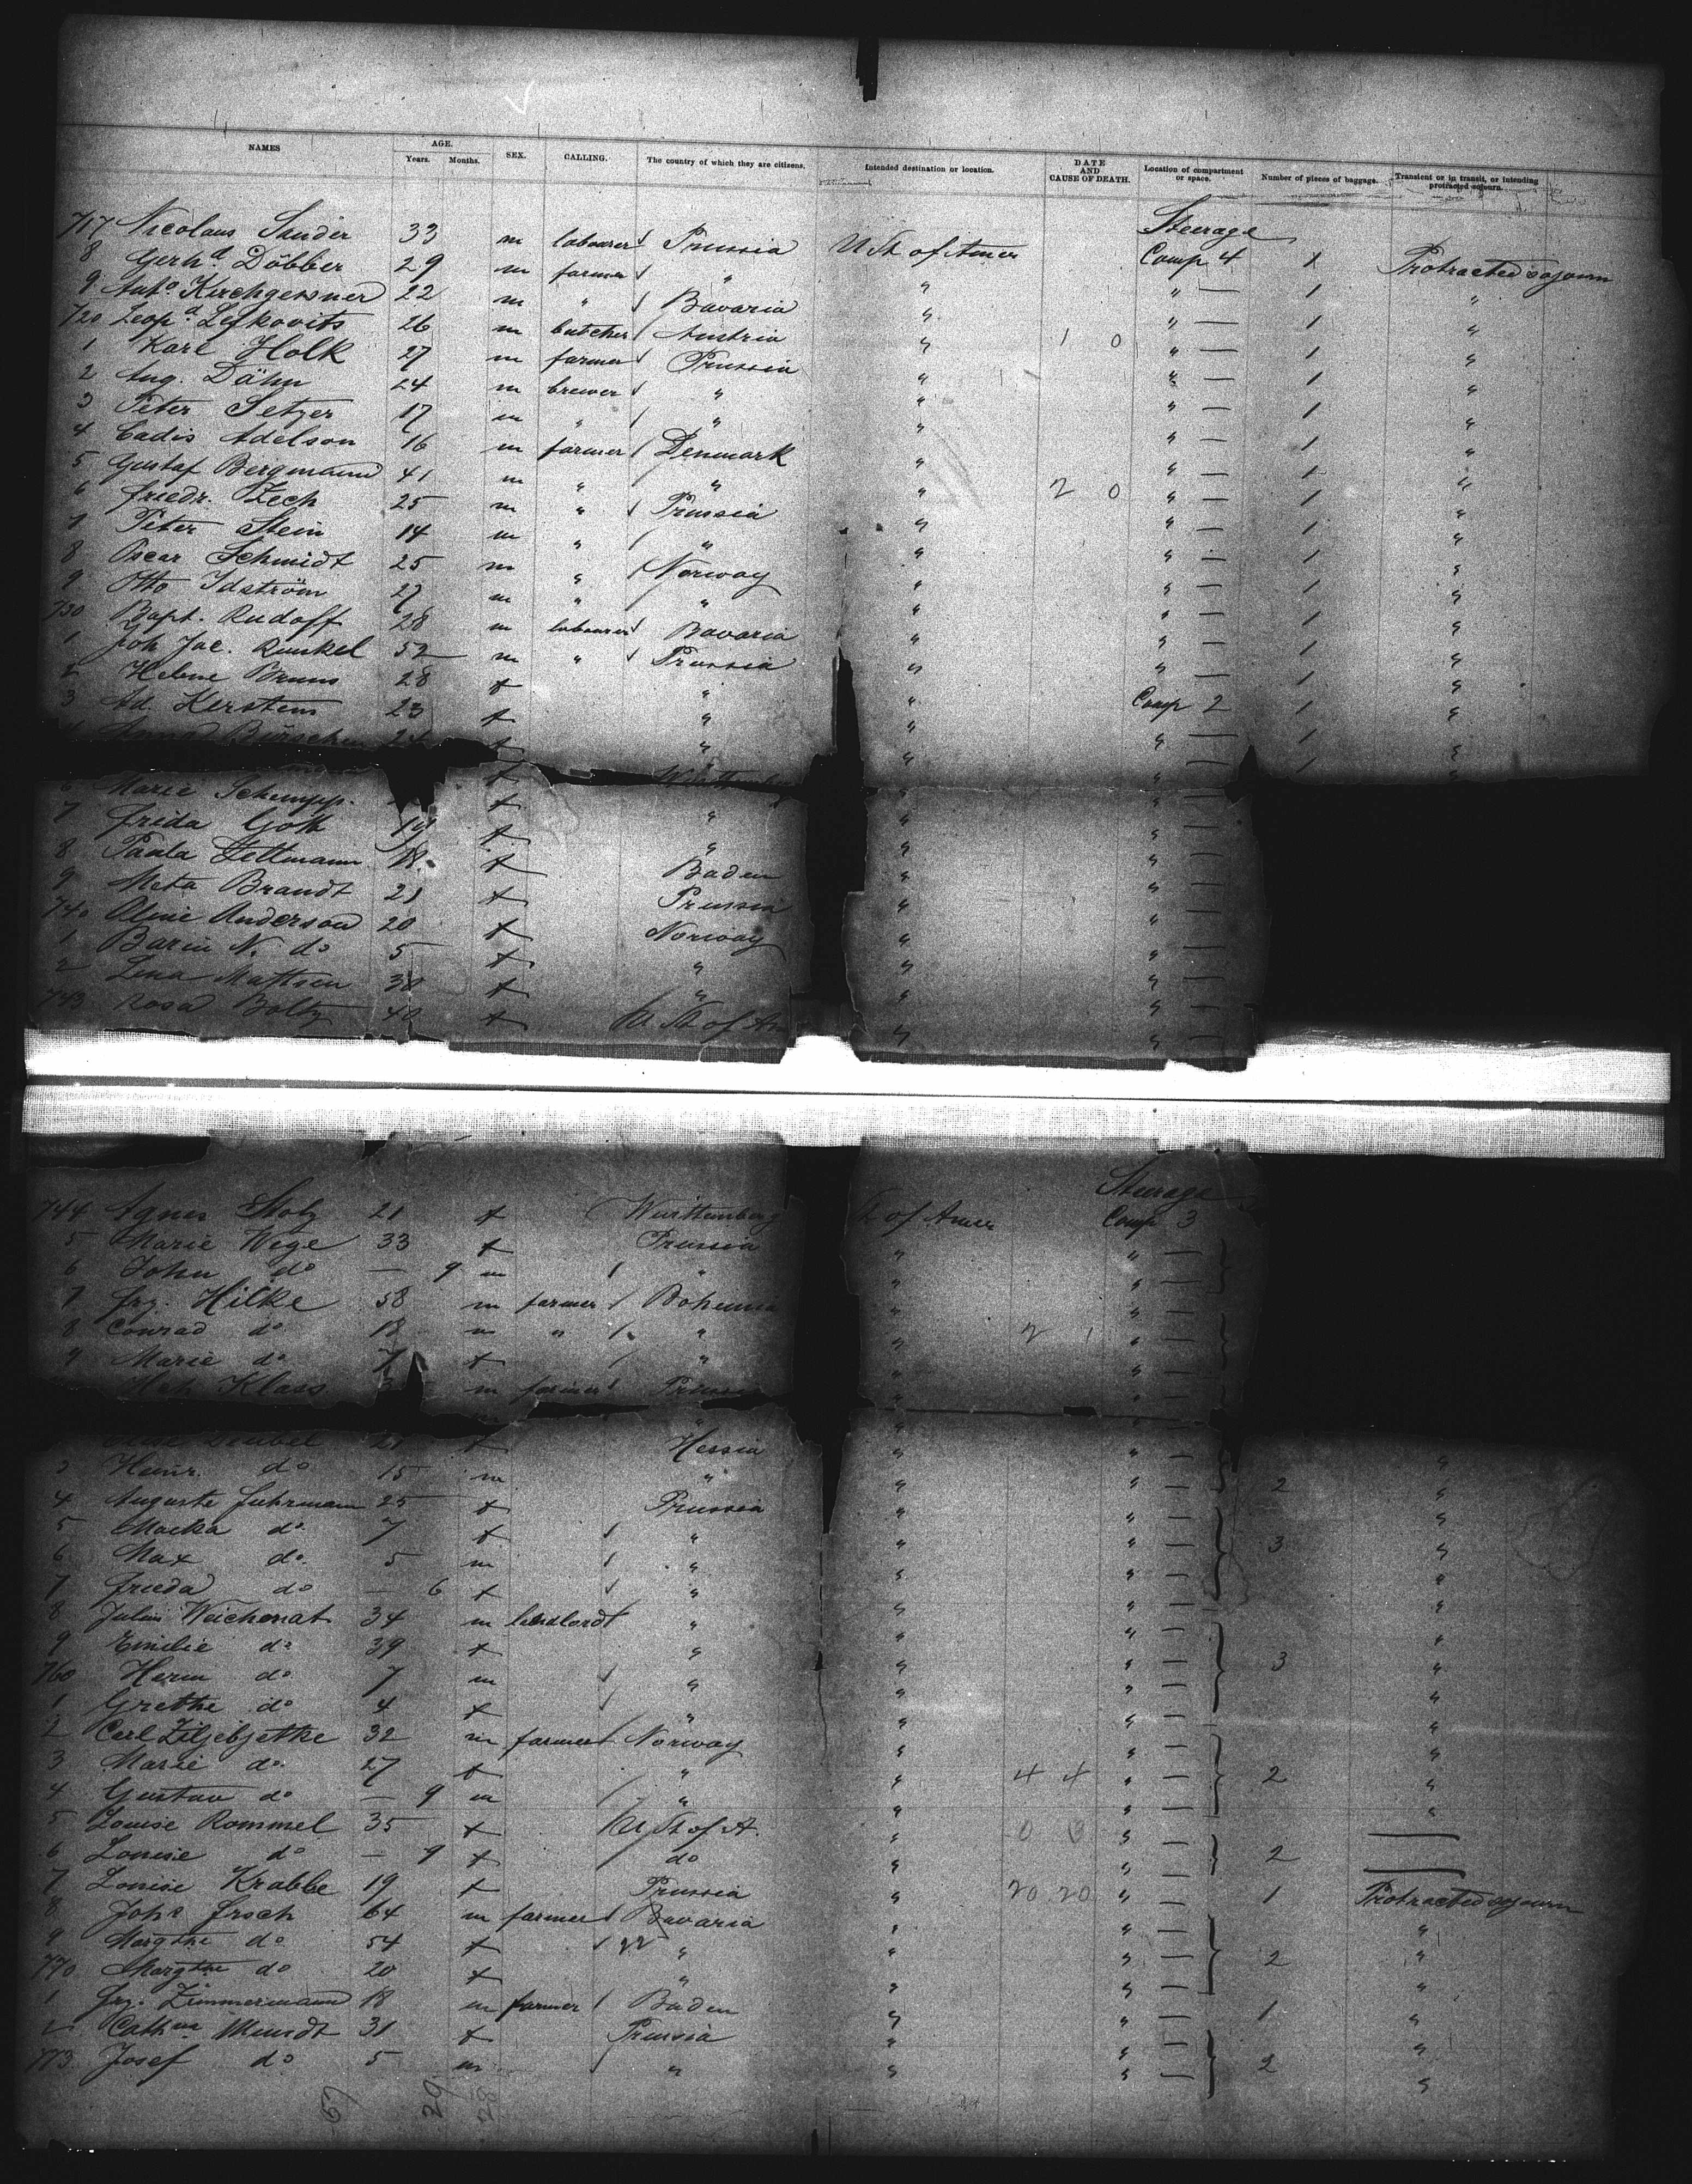 NAMES AGE. Years. Months. SEX. CALLING. The country of which they are citizens. Intended destination or location. DATE AND CAUSE OF DEATH. Location of compartment or space. Number of pieces of baggage. Transient or in transit, or intending protracted sojourn.
Steerage
717 Nicolaus Sander 33 m labourer Prussia U St of Amer Comp 4 1 Protracted sojourn
8 Gerhd Döbber 29 m farmer " " " — 1 "
9 Anto Kirchgessner 22 m " Bavaria " " — 1 "
720 Leopd Lefkovits 26 m butcher Austria " 1 0 " — 1 "
1 Karl Holk 27 m farmer Prussia " " — 1 "
2 Aug. Dähn 24 m brewer " " " — 1 "
3 Peter Setzer 17 m " " " " — 1 "
4 Cadis Adelson 16 m farmer Denmark " " — 1 "
5 Gustaf Bergmann 41 m " " " 2 0 " — 1 "
6 Friedr. Zech 25 m " Prussia " " — 1 "
7 Peter Stein 14 m " " " " — 1 "
8 Oscar Schmidt 25 m " Norway " " — 1 "
9 Otto Idström 27 m " " " " — 1 "
730 Bapt. Rudoff 28 m labourer Bavaria " " — 1 "
1 Joh Jac. Runkel 52 m " Prussia " " — 1 "
2 Helene Bruns 28 f " " Comp 2 1 "
3 Ad. Kerstens 23 f " " " — 1 "
24 f " "
6 Marie Schempp. f " "
7 Frida Goll 19 f " " " —
8 Paula Stettmann 18 f Baden " " —
9 Meta Brandt 21 f Prussia " " —
740 Oline Anderson 20 f Norway " " —
1 N. do 5 f " " " —
2 Lina Mattsen 30 f " " " —
743 Rosa Boltz 40 f U St of Am " " —
Steerage
744 Agnes Stotz 21 f Württemberg St of Amer Comp 3
5 Marie Wege 33 f Prussia " " —
6 John do — 9 m " " " —
7 Frz. Hilke 58 m farmer Bohemia " " —
8 Conrad do 18 m " " " 2 1 " —
9 Marie do 7 f " " " —
Hch Klass m farmer Prussia " " —
21 f Hessia " " —
3 Heinr. do 15 m " " " — 2 "
4 Auguste Fuhrmann 25 f Prussia " " — "
5 do. 7 f " " " — 3 "
6 Max do. 5 m " " " — "
7 Frieda do — 6 f " " " — "
8 Julius Weichenat 34 m landlord " " " — "
9 Emilie do 39 f " " " — 3 "
760 Herm do 7 m " " " — "
1 Grethe do 4 f " " " — "
2 Carl Ziljebjetke 32 m farmer Norway " " — "
3 Marie do. 27 f " " 4 4 " — 2 "
4 Gustav do — 9 m " " " — "
5 Louise Rommel 35 f U St of A. " " — —
6 Louise do — 9 f do " " — 2 —
7 Louise Krabbe 19 f Prussia " 20 20 " — 1 Protracted sojourn
8 Joh. Frsch 64 m farmer Bavaria " " — "
9 Margthe do 54 f " " " — 2 "
770 Margthe do 20 f " " " — "
1 Frz. Zimmermann 18 m farmer Baden " " — 1 "
2 Cathne Mundt 31 f Prussia " " — "
773 Josef do 5 m " " " — 2 "
67 29 28